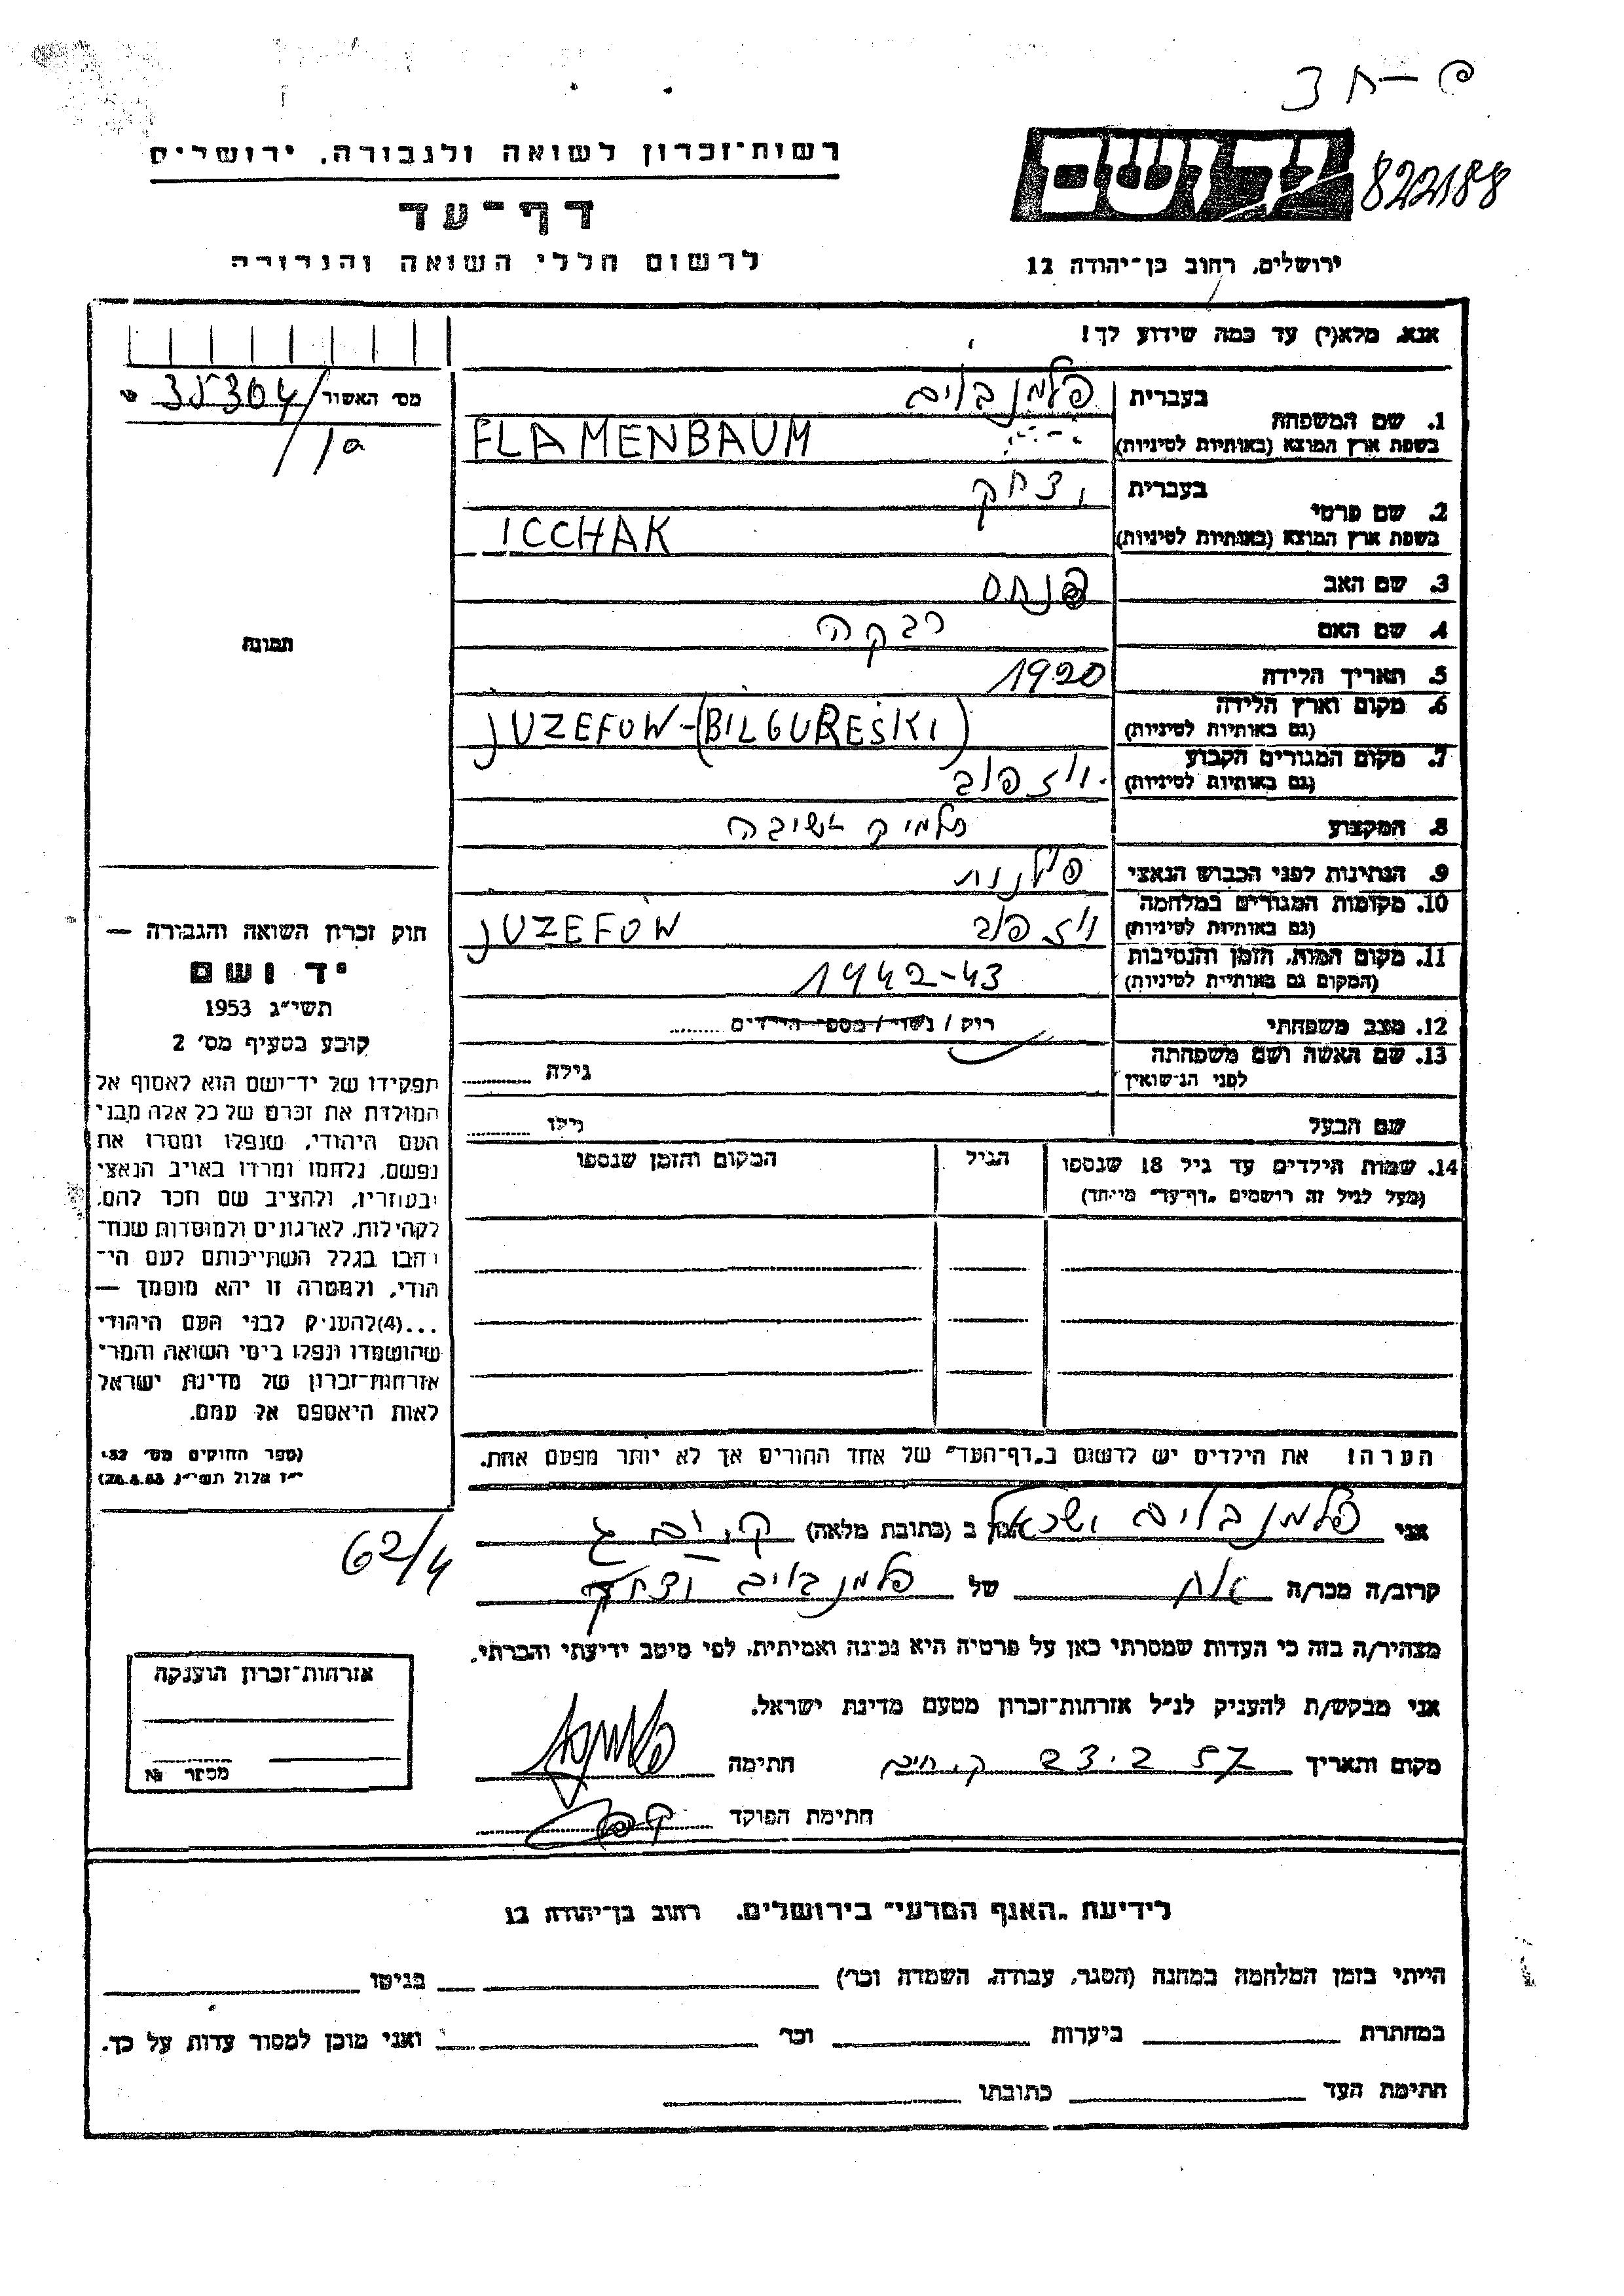 פ-ח 3
822188
יד ושם
ירושלים, רחוב בן-יהודה 12
רשות-זכרון לשואה ולגבורה, ירושלים
דף-עד
לרשום חללי השואה והגבורה
אנא, מלא(י) עד כמה שידוע לך!
מס׳ האשור 35304/
/1a
1. שם המשפחה
בעברית פלמנבוים
בשפת ארץ המוצא (באותיות לטיניות) FLAMENBAUM
2. שם פרטי
בעברית יצחק
בשפת ארץ המוצא (באותיות לטיניות) ICCHAK
3. שם האב פנחס
4. שם האם רבקה
5. תאריך הלידה 1920
6. מקום וארץ הלידה
(גם באותיות לטיניות) JUZEFOW-(BILGUREŚKI)
7. מקום המגורים הקבוע
(גם באותיות לטיניות) יוזפוב
8. המקצוע תלמיד ישיבה
9. הנתינות לפני הכבוש הנאצי פולנית
10. מקומות המגורים במלחמה
(גם באותיות לטיניות) יוזפוב JUZEFOW
11. מקום המות, הזמן והנסיבות
(המקום גם באותיות לטיניות) 1942-43
12. מצב משפחתי רווק / נשוי / מספר הילדים ........
13. שם האשה ושם משפחתה
לפני הנישואין גילה
שם הבעל גילו
14. שמות הילדים עד גיל 18 שנספו
(מעל לגיל זה רושמים "דף-עד" מייחד)
הגיל
המקום והזמן שנספו
הערה! את הילדים יש לרשום ב"דף-העד" של אחד ההורים אך לא יותר מפעם אחת.
תמונה
חוק זכרון השואה והגבורה —
יד ושם
תשי״ג 1953
קובע בסעיף מס׳ 2
תפקידו של יד-ושם הוא לאסוף אל
המולדת את זכרם של כל אלה מבני
העם היהודי, שנפלו ומסרו את
נפשם, נלחמו ומרדו באויב הנאצי
ובעוזריו, ולהציב שם וזכר להם,
לקהילות, לארגונים ולמוסדות שנח-
רבו בגלל השתייכותם לעם הי-
הודי, ולמטרה זו יהא מוסמך —
...(4) להעניק לבני העם היהודי
שהושמדו ונפלו בימי השואה והמרי
אזרחות-זכרון של מדינת ישראל
לאות היאספם אל עמם.
(ספר החוקים מס׳ 132,
י״ז אלול תשי״ג 28.8.53)
62/4
אני פלמנבוים ישראל הגר ב (כתובת מלאה) ק. חיים ג
קרוב/ה מכר/ה אח של פלמנבוים יצחק
מצהיר/ה בזה כי העדות שמסרתי כאן על פרטיה היא נכונה ואמיתית, לפי מיטב ידיעתי והכרתי.
אני מבקש/ת להעניק לנ״ל אזרחות-זכרון מטעם מדינת ישראל.
מקום ותאריך 23.2.57 ק. חיים חתימה
חתימת הפוקד
אזרחות-זכרון הוענקה
מכתר №
לידיעת "האגף המדעי" בירושלים, רחוב בן-יהודה 12
הייתי בזמן המלחמה במחנה (הסגר, עבודה, השמדה וכו׳) בגיטו
במחתרת ביערות וכו׳ ואני מוכן למסור עדות על כך.
חתימת העד כתובתו